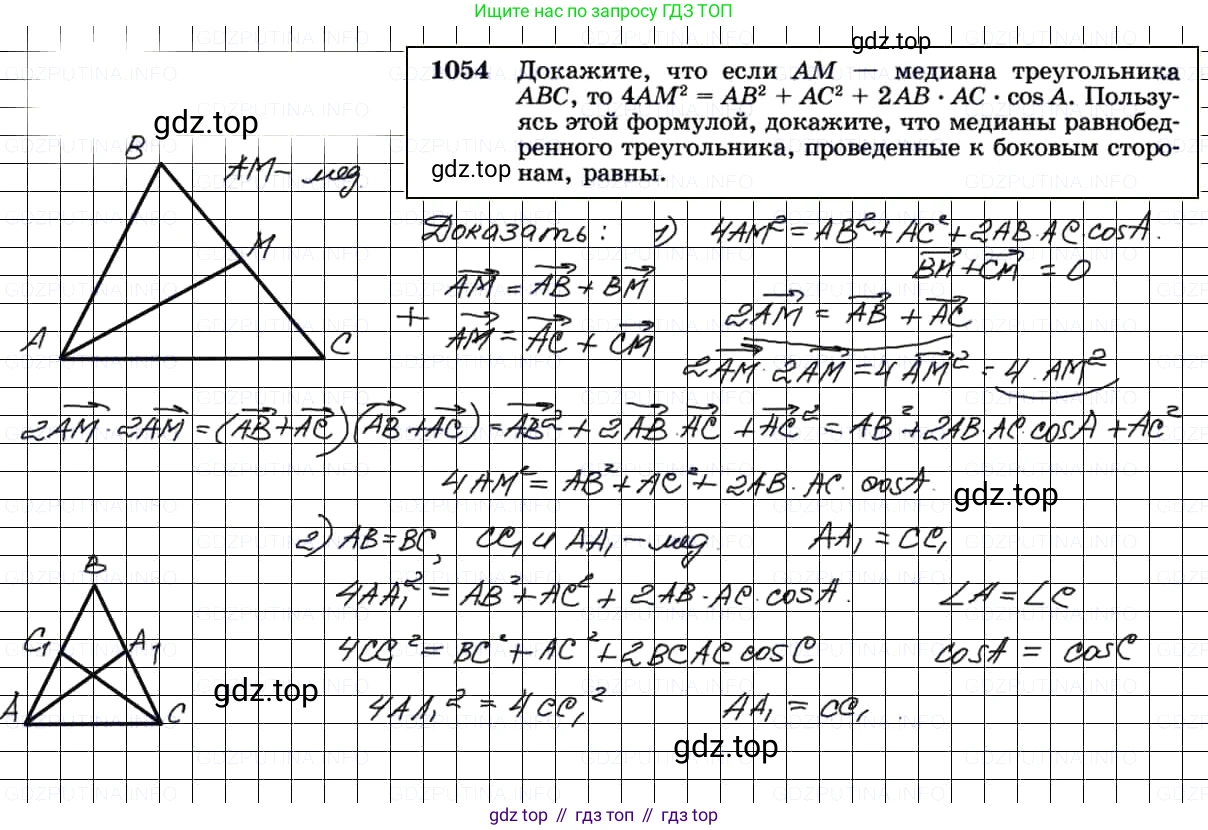 Ищите нас по запросу ГДЗ ТОП
gdz.top
1054 Докажите, что если AM — медиана треугольника
ABC, то 4AM² = AB² + AC² + 2AB · AC · cos A. Пользу-
ясь этой формулой, докажите, что медианы равнобед-
ренного треугольника, проведенные к боковым сторо-
нам, равны.
gdz.top
gdz.top
B
AM – мед.
M
A
C
Доказать: 1) 4AM² = AB² + AC² + 2AB·AC·cosA.
AM = AB + BM
BM + CM = 0
+ AM = AC + CM
2AM = AB + AC
2AM · 2AM = 4AM² = 4·AM²
2AM · 2AM = (AB + AC)(AB + AC) = AB² + 2AB·AC + AC² = AB² + 2AB·AC·cosA + AC²
4AM² = AB² + AC² + 2AB·AC·cosA.
gdz.top
2) AB = BC, CC₁ и AA₁ – мед. AA₁ = CC₁
4AA₁² = AB² + AC² + 2AB·AC·cosA. ∠A = ∠C
4CC₁² = BC² + AC² + 2BC AC cosC cosA = cosC
4AA₁² = 4CC₁² AA₁ = CC₁.
B
C₁
A₁
A
C
gdz.top
gdz.top
gdz top // гдз топ // gdz top
GDZPUTINA.INFO